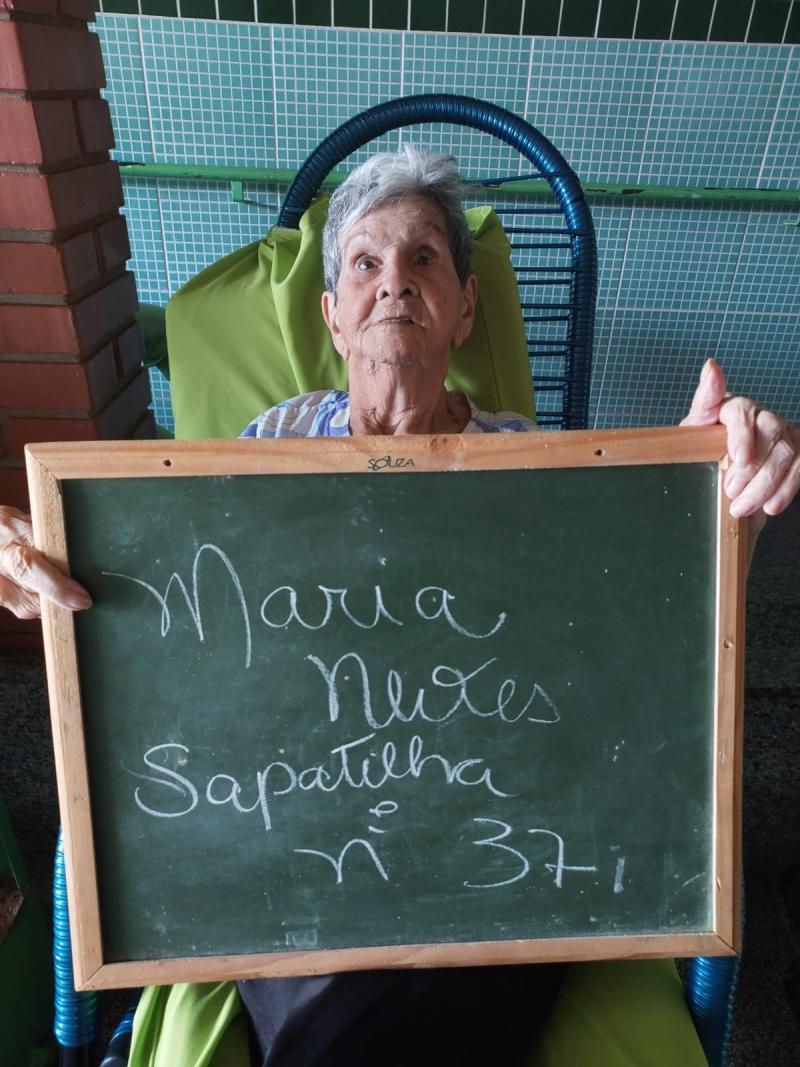 SOUZA
Maria
Neves
Sapatilha
nº 37,